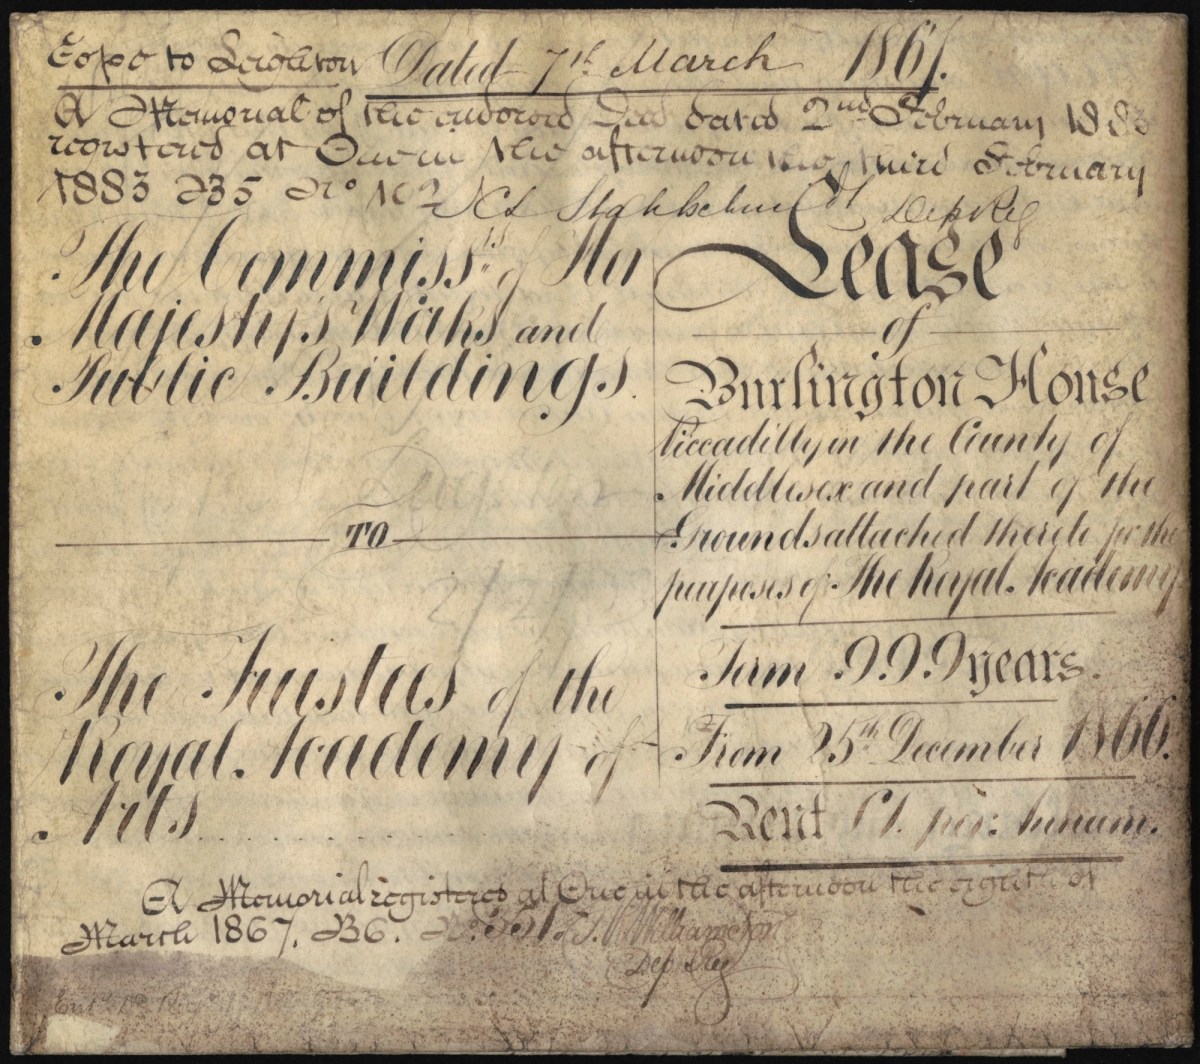 Cope to Leighton Dated 7th March 1867.
A Memorial of the endorsed Deed dated 2nd February 1883
registered at One in the afternoon the third February
1883 B5 No 102
Dep Reg
The Commissrs of Her
Majesty's Works and
Public Buildings.
TO
The Trustees of the
Royal Academy of
Arts
Lease
of
Burlington House
Piccadilly in the County of
Middlesex and part of the
Grounds attached thereto for the
purposes of The Royal Academy
Term 999 years.
From 25th December 1866.
Rent £1. per: Annum.
A Memorial registered at One in the afternoon the eighth of
March 1867. B6. No. 551
Dep Reg